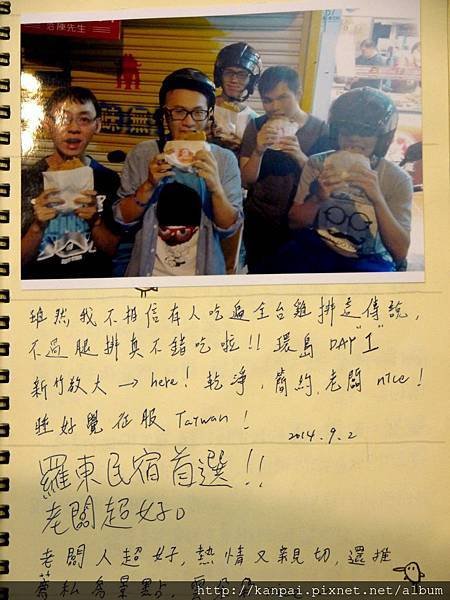 陳先生
味無
雖然我不相信有人吃遍全台雞排這傳說，
不過腿排真不錯吃啦!! 環島 DAY "1"
新竹教大 → here! 乾淨，簡約，老闆 nice!
睡好覺 征服 Taiwan!
2014.9.2
羅東民宿首選!!
老闆超好。
老闆人超好，熱情又親切，還推
薦私房景點，
http://kanpai.pixnet.net/album